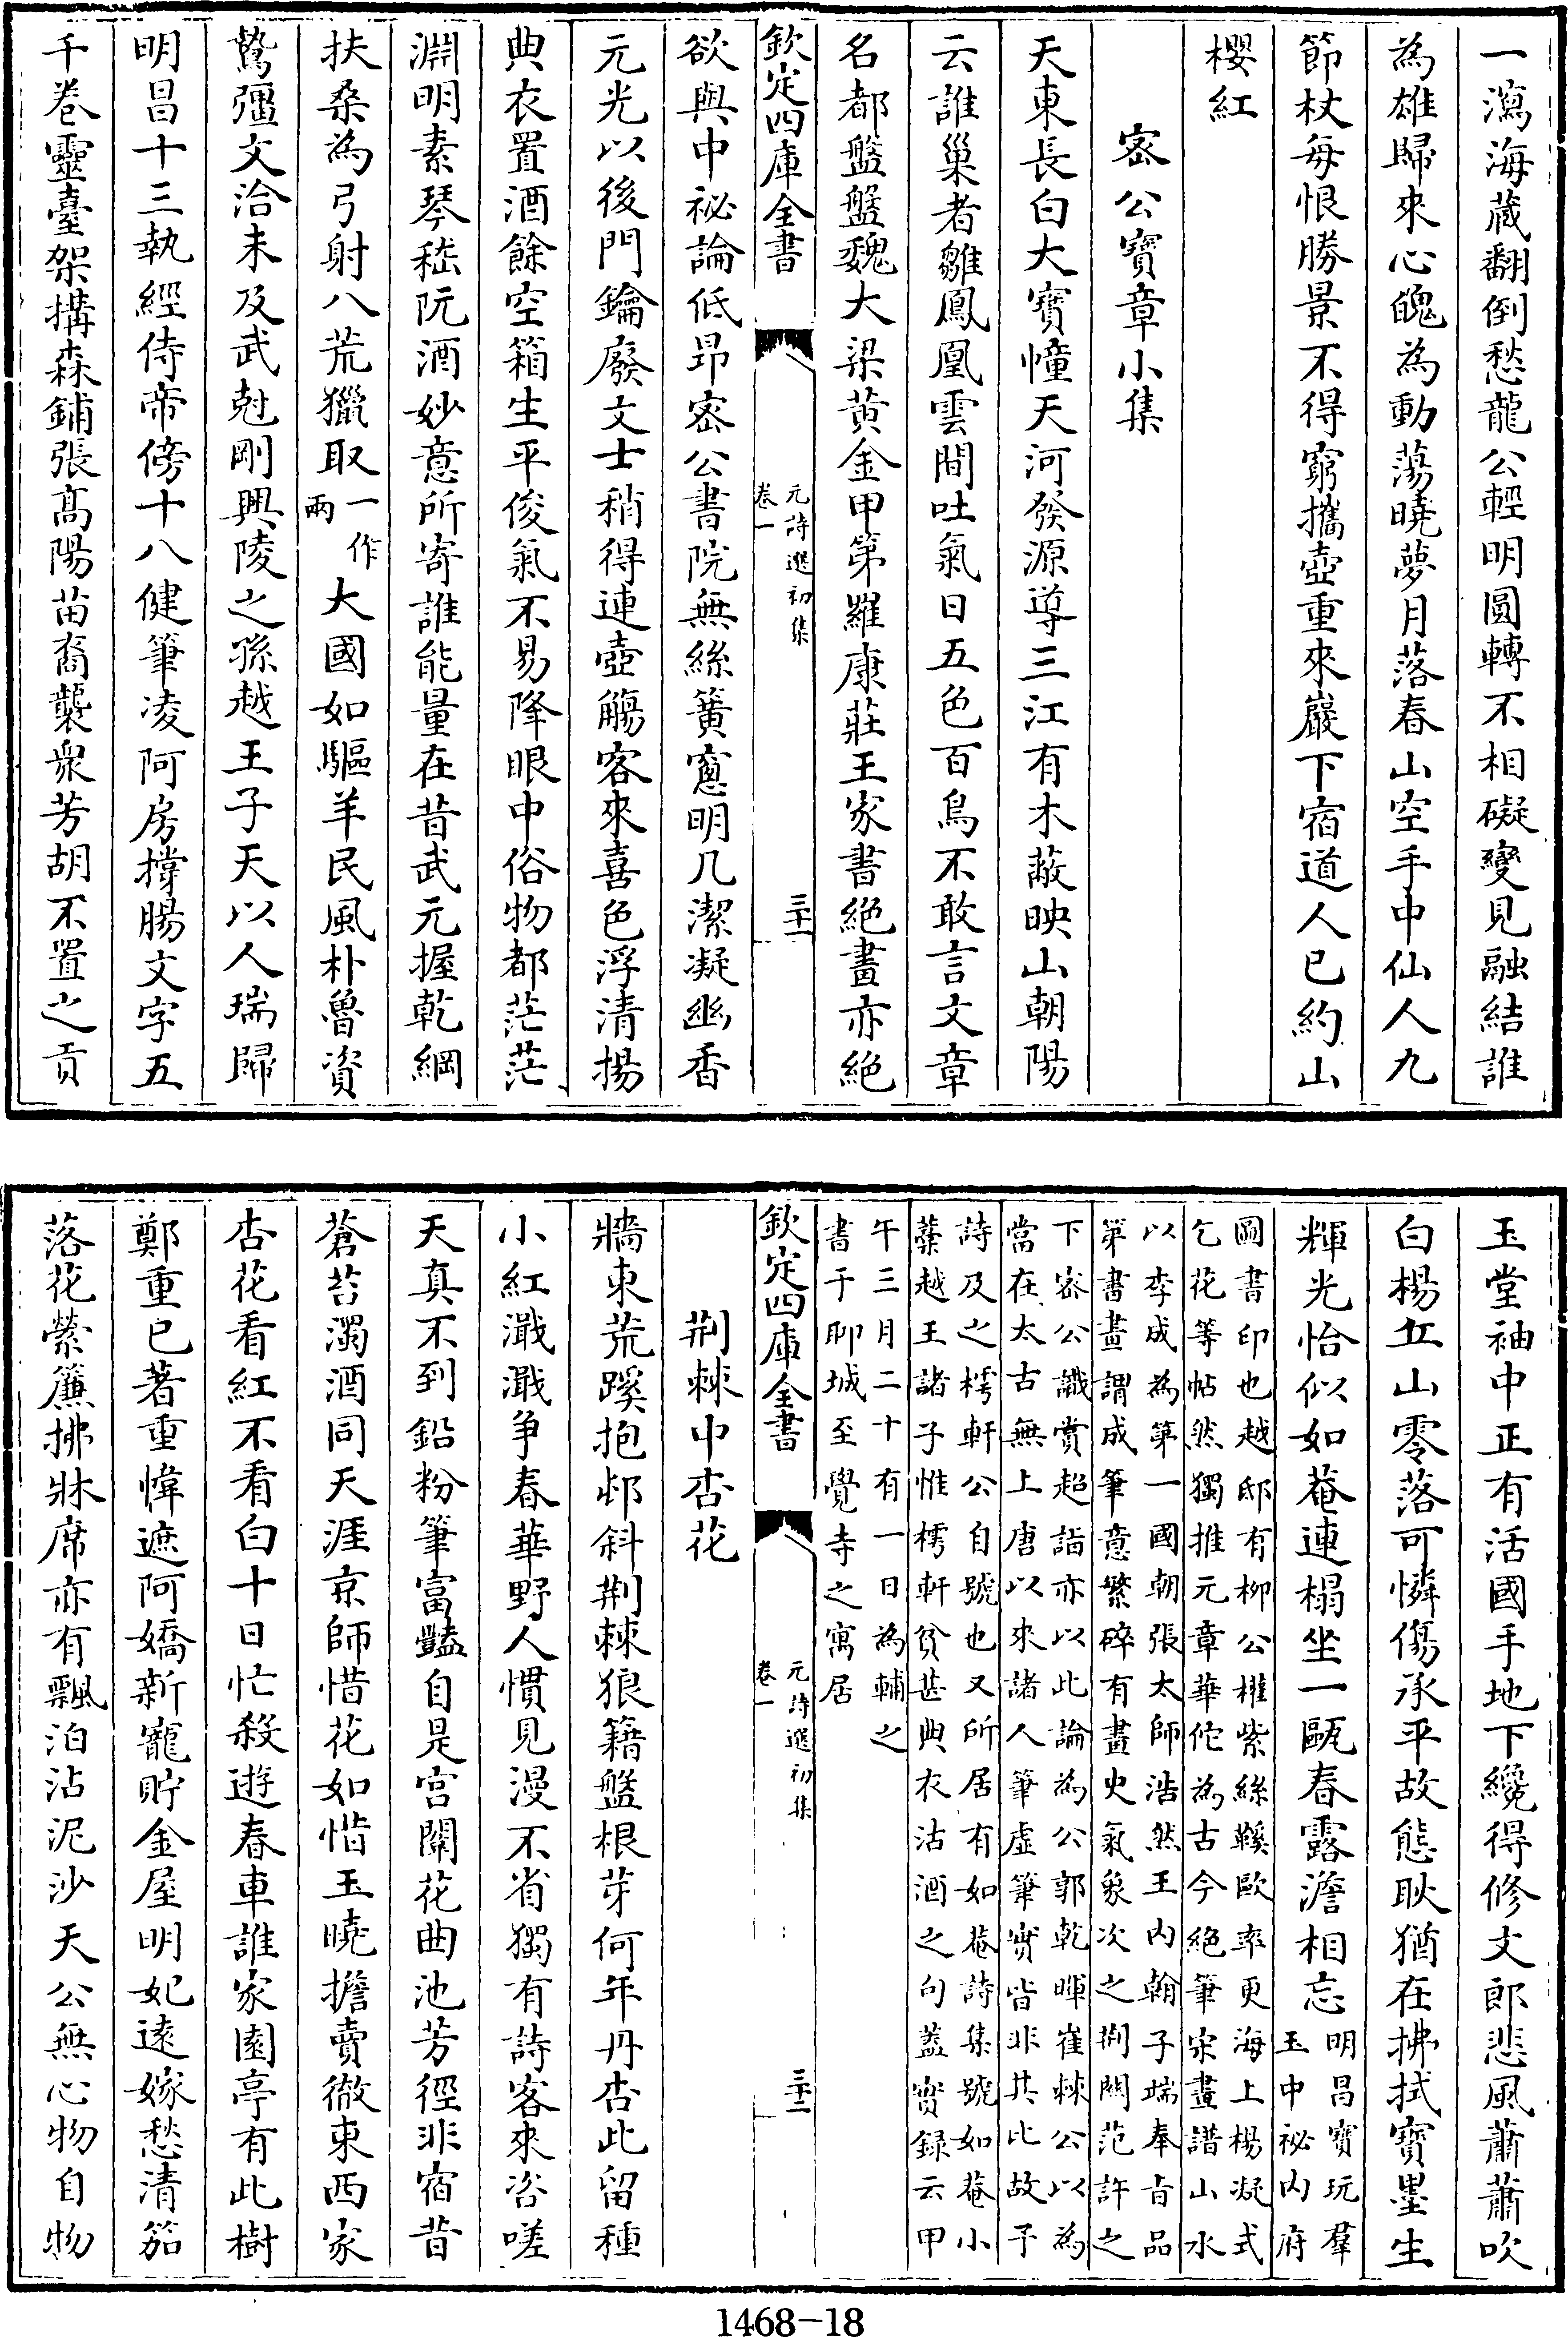 一瀉海藏翻倒愁龍公輕明圓轉不相礙變見融結誰
為雄歸來心魄為動蕩曉夢月落春山空手中仙人九
節杖每恨勝景不得窮攜壺重來巖下宿道人已約山
櫻紅
密公寶章小集
天東長白大寶幢天河發源導三江有木蔽映山朝陽
云誰巢者雛鳳凰雲間吐氣日五色百鳥不敢言文章
名都盤盤魏大梁黄金甲第羅康莊王家書絕畫亦絕
欽定四庫全書
元詩選初集
卷一
三十一
欲與中祕論低昻密公書院無絲簧窻明几潔凝幽香
元光以後門鑰廢文士稍得連壺觴客來喜色浮清揚
典衣置酒餘空箱生平俊氣不易降眼中俗物都茫茫
淵明素琴嵇阮酒妙意所寄誰能量在昔武元握乾綱
扶桑為弓射八荒獵取一作兩大國如驅羊民風朴魯資
驁彊文治未及武尅剛興陵之孫越王子天以人瑞歸
明昌十三執經侍帝傍十八健筆凌阿房撐腸文字五
千卷靈臺架搆森鋪張髙陽苗裔襲衆芳胡不置之貢
玉堂袖中正有活國手地下纔得修文郎悲風蕭蕭吹
白楊丘山零落可憐傷承平故態耿猶在拂拭寶墨生
輝光怡似如菴連榻坐一甌春露澹相忘明昌寶玩羣
玉中祕内府
圖書印也越邸有柳公權紫絲鞵歐率更海上楊凝式
乞花等帖然獨推元章華佗為古今絕筆宋畫譜山水
以李成為第一國朝張太師浩然王内翰子端奉旨品
第書畫謂成筆意繁碎有畫史氣象次之荆關范許之
下密公識賞超詣亦以此論為公郭乾暉崔棘公以為
當在太古無上唐以來諸人筆虛筆實皆非其比故予
詩及之樗軒公自號也又所居有如菴詩集號如菴小
藁越王諸子惟樗軒貧甚典衣沽酒之句葢實録云甲
午三月二十有一日為輔之
書于聊城至覺寺之寓居
欽定四庫全書
元詩選初集
卷一
三十二
荆棘中杏花
牆東荒蹊抱邨斜荆棘狼籍盤根芽何年丹杏此留種
小紅濈濈爭春華野人慣見漫不省獨有詩客來咨嗟
天真不到鉛粉筆富豔自是宫闈花曲池芳徑非宿昔
蒼苔濁酒同天涯京師惜花如惜玉曉擔賣徹東西家
杏花看紅不看白十日忙殺遊春車誰家園亭有此樹
鄭重已著重幃遮阿嬌新寵貯金屋明妃逺嫁愁清笳
落花縈簾拂牀席亦有飄泊沾泥沙天公無心物自物
1468-18